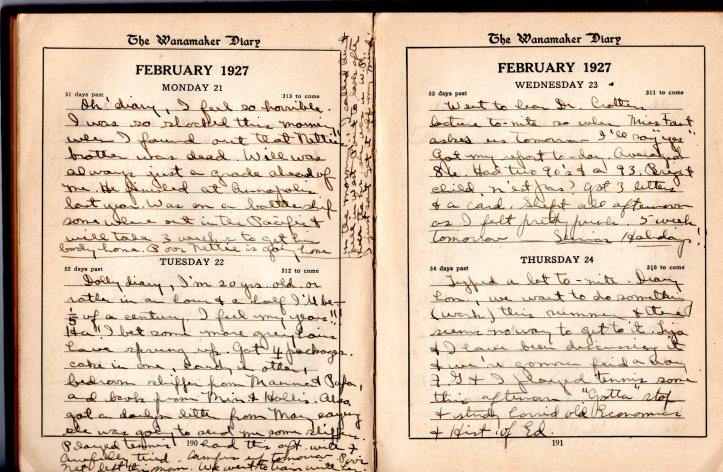 The Wanamaker Diary
FEBRUARY 1927
MONDAY 21
51 days past
313 to come
Oh! diary, I feel so horrible.
I was so shocked this morning
when I found out that Nettie's
brother was dead. Will was
always just a grade ahead of
me. He finished at Annapolis
last year. Was on a battleship
some where out in the Pacific &
will take 3 weeks to get his
body home. Poor Nettie is going home
TUESDAY 22
52 days past
312 to come
Dolly diary, I'm 20 yrs. old or
rather in an hour & a half I'll be
1/5 of a century. I feel my years!!
Ha! I bet some more gray hairs
have sprung up. Got 4 packages.
cake in one, candy in other,
bedroom slippers from Mamma & Papa,
and book from & Hollis. Also
got a darling letter from May saying
she was going to send me some slippers.
Played tennis hard this aft. with &
awfully tired. Campus tomorrow. Poor
Net left this morn. We went to train with her.
190
The Wanamaker Diary
FEBRUARY 1927
WEDNESDAY 23
53 days past
311 to come
Went to hear Dr.
lecture to-nite so when Miss Fant
asks us tomorrow I'll say "yes"
Got my report to-day. Averaged
86. Had two 90's & a 93. Bright
child, n'est pas? Got 3 letters
& a card. Slept all afternoon
as I felt pretty punk. 5 weeks
tomorrow Senior Holiday!
THURSDAY 24
54 days past
310 to come
Typed a lot to-nite. Diary
hon, we want to do something
(work) this summer & there
seems no way to get to it.
& I have been discussing it
& we're gonner find a way
? G & I played tennis some
this afternoon "Gotta" stop
& study horrid old Economics
& Hist. of Ed.
191